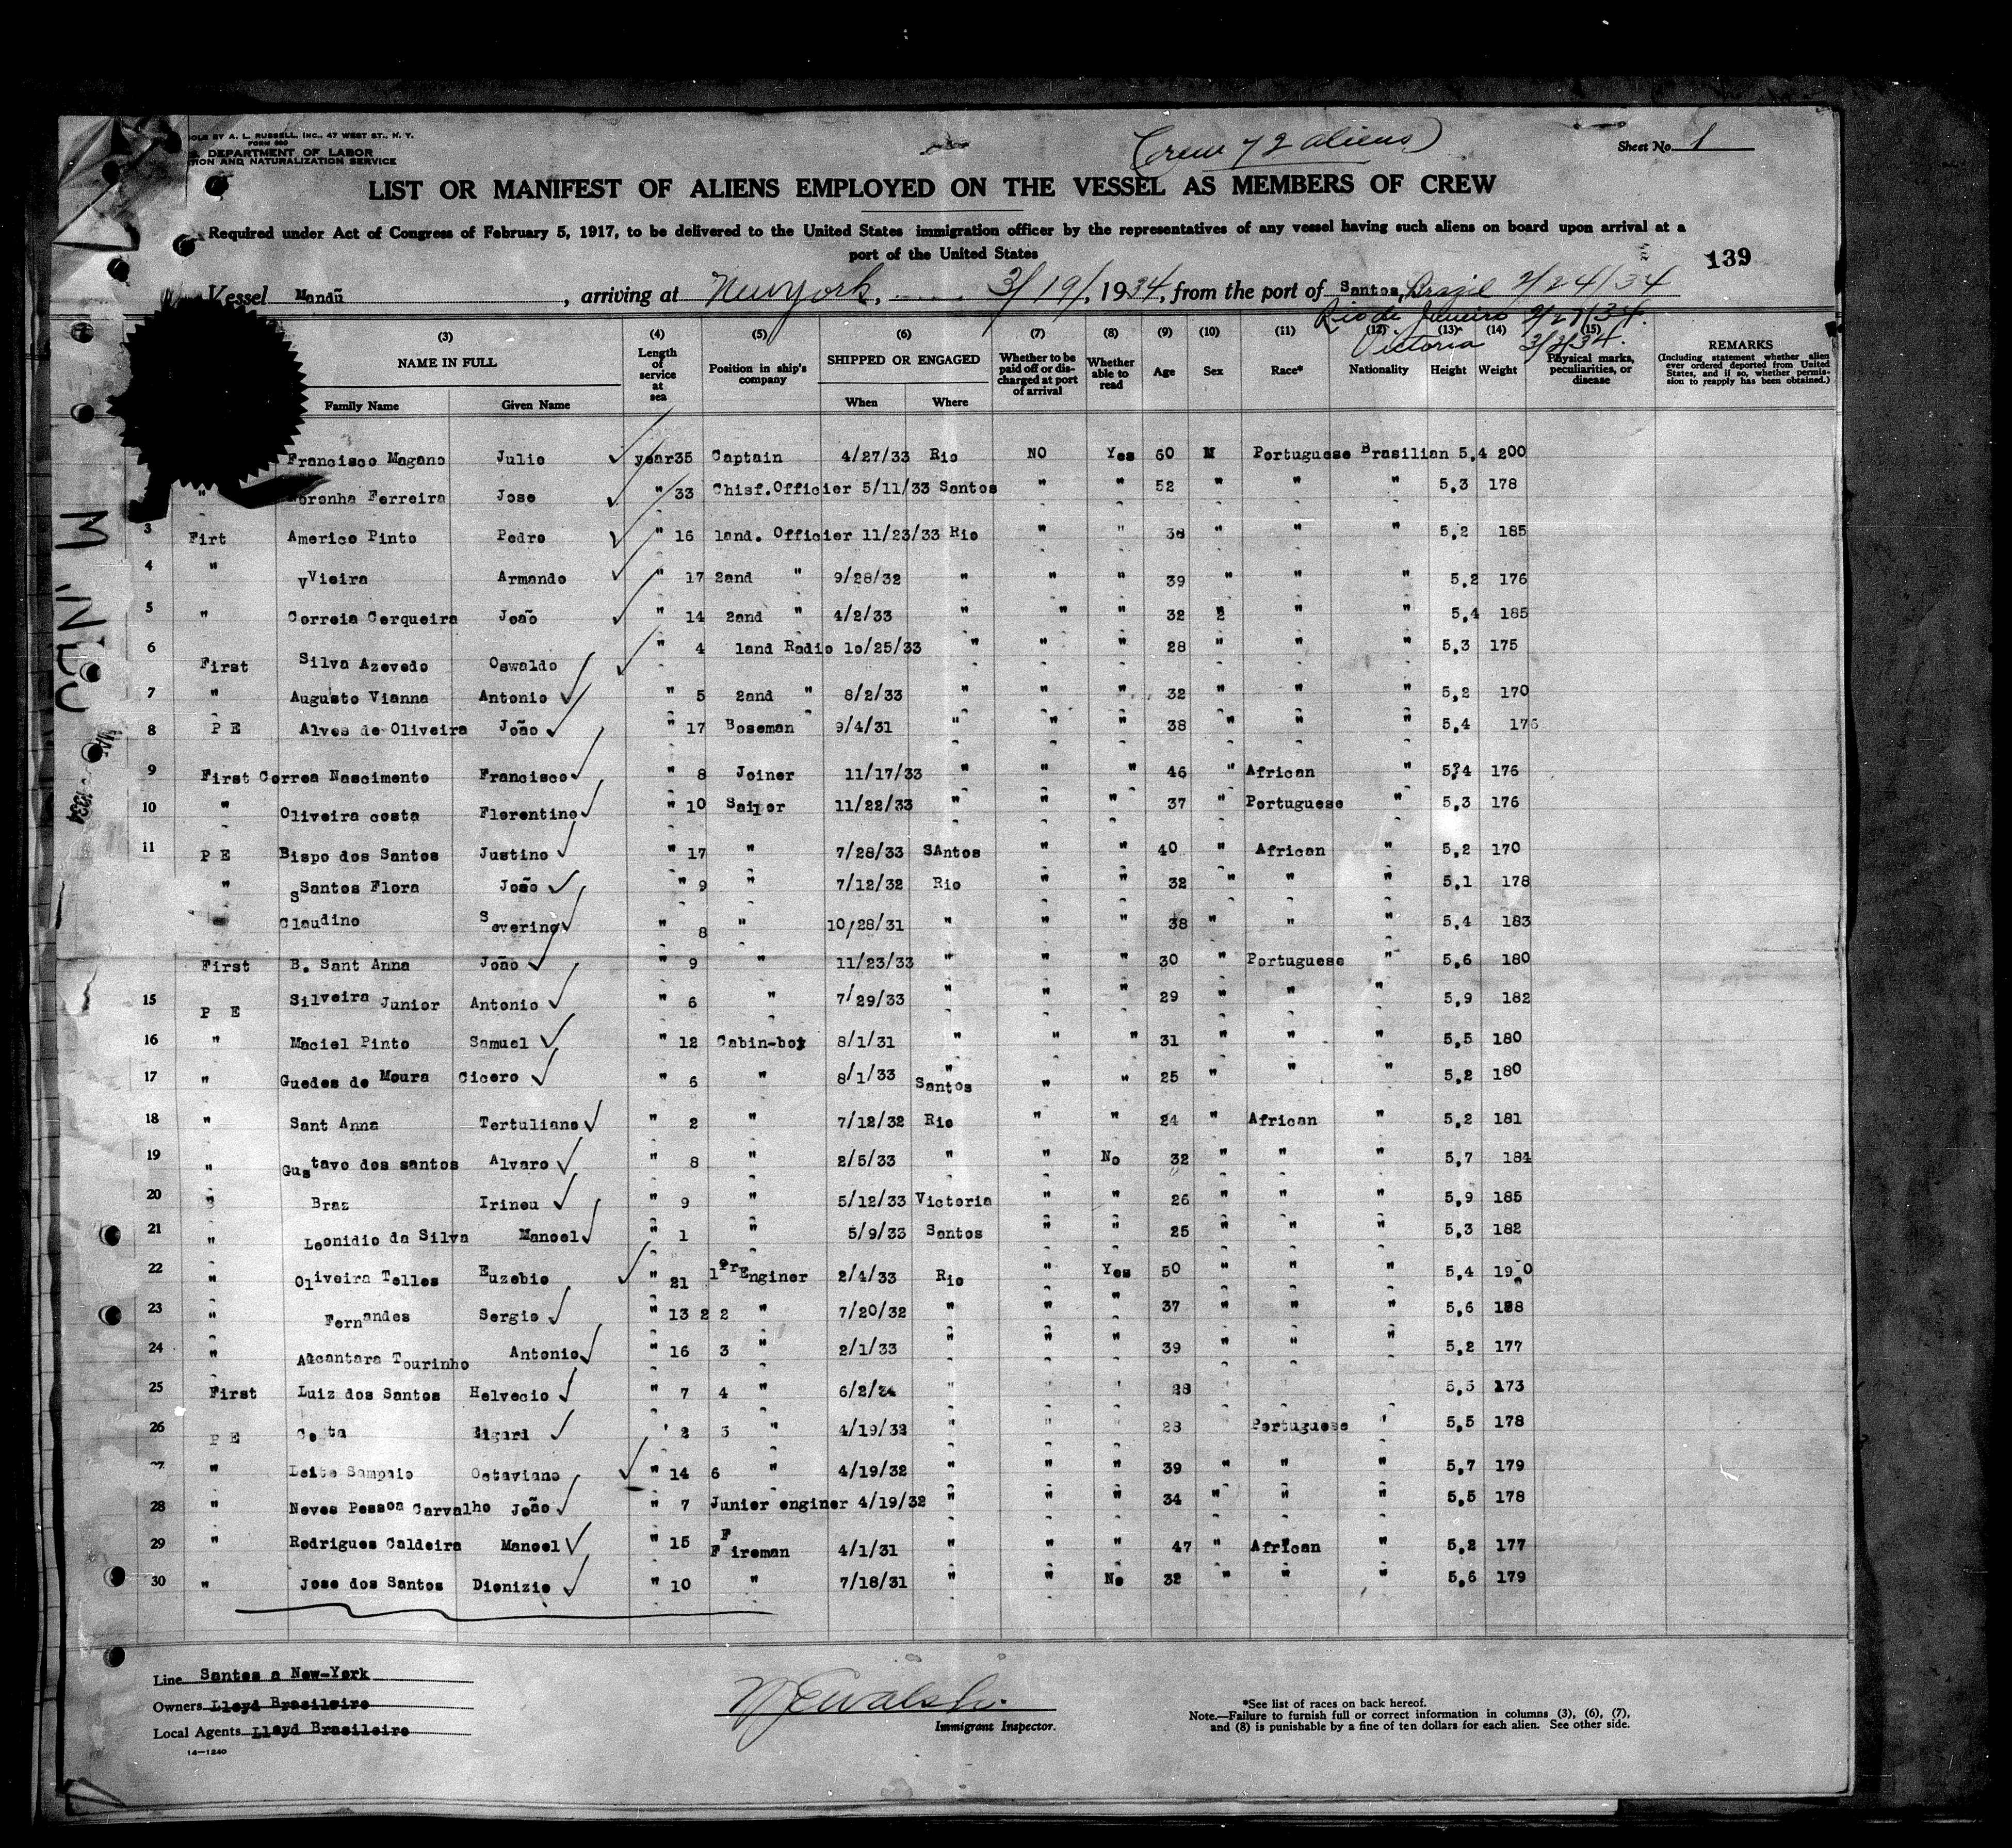 SOLD BY A. L. RUSSELL, INC., 47 WEST ST., N. Y.
FORM 680
DEPARTMENT OF LABOR
TION AND NATURALIZATION SERVICE
Crew 72 aliens
Sheet No. 1
LIST OR MANIFEST OF ALIENS EMPLOYED ON THE VESSEL AS MEMBERS OF CREW
Required under Act of Congress of February 5, 1917, to be delivered to the United States immigration officer by the representatives of any vessel having such aliens on board upon arrival at a
port of the United States
139
Vessel Mandũ, arriving at New York, 3/19/, 1934, from the port of Santos, Brazil 2/24/34
Rio de Janeiro 2/28/34.
Victoria 3/3/34.
(3) (4) (5) (6) (7) (8) (9) (10) (11) (12) (13) (14) (15)
NAME IN FULL
Family Name Given Name
Length of service at sea
Position in ship's company
SHIPPED OR ENGAGED
When Where
Whether to be paid off or discharged at port of arrival
Whether able to read
Age Sex Race* Nationality Height Weight
Physical marks, peculiarities, or disease
REMARKS
(Including statement whether alien ever ordered deported from United States, and if so, whether permission to reapply has been obtained.)
Francisco Magano Julio year 35 Captain 4/27/33 Rio NO Yes 60 M Portuguese Brasilian 5,4 200
" Noronha Ferreira Jose " 33 Chisf.Officier 5/11/33 Santos " " 52 " " " 5,3 178
3 Firt Americo Pinto Pedro " 16 1and. Officier 11/23/33 Rio " " 38 " " " 5,2 185
4 " vVieira Armando " 17 2and " 9/28/32 " " " 39 " " " 5,2 176
5 " Correia Cerqueira João " 14 2and " 4/2/33 " " " 32 " " " 5,4 185
6 First Silva Azevedo Oswaldo " 4 1and Radio 10/25/33 " " " 28 " " " 5,3 175
7 " Augusto Vianna Antonio " 5 2and " 8/2/33 " " " 32 " " " 5,2 170
8 P E Alves de Oliveira João " 17 Boseman 9/4/31 " " " 38 " " " 5,4 176
9 First Correa Nascimento Francisco " 8 Joiner 11/17/33 " " " 46 " African " 5,4 176
10 " Oliveira costa Florentino " 10 Sailor 11/22/33 " " " 37 " Portuguese " 5,3 176
11 P E Bispo dos Santos Justino " 17 " 7/28/33 SAntos " " 40 " African " 5,2 170
" sSantos Flora João " 9 " 7/12/32 Rio " " 32 " " " 5,1 178
Claudino Severino " 8 " 10/28/31 " " " 38 " " " 5,4 183
First B. Sant Anna João " 9 " 11/23/33 " " " 30 " Portuguese " 5,6 180
15 P E Silveira Junior Antonio " 6 " 7/29/33 " " " 29 " " " 5,9 182
16 " Maciel Pinto Samuel " 12 Cabin-boy 8/1/31 " " " 31 " " " 5,5 180
17 " Guedes de Moura Cicero " 6 " 8/1/33 " Santos " " 25 " " " 5,2 180
18 " Sant Anna Tertuliano " 2 " 7/12/32 Rio " " 24 " African " 5,2 181
19 " Gustavo dos santos Alvaro " 8 " 2/5/33 " " No 32 " " " 5,7 184
20 " Braz Irineu " 9 " 5/12/33 Victoria " " 26 " " " 5,9 185
21 " Leonidio da Silva Manoel " 1 " 5/9/33 Santos " " 25 " " " 5,3 182
22 " Oliveira Telles Euzebio " 21 1er Enginer 2/4/33 Rio " Yes 50 " " " 5,4 190
23 " Fernandes Sergio " 13 2 2 " 7/20/32 " " " 37 " " " 5,6 188
24 " Alcantara Tourinho Antonio " 16 3 " 2/1/33 " " " 39 " " " 5,2 177
25 First Luiz dos Santos Helvecio " 7 4 " 6/2/24 " " " 28 5,5 173
26 P E Costa Edgard " 2 5 " 4/19/32 " " " 23 Portuguese " 5,5 178
" Leite Sampaio Octaviano " 14 6 " 4/19/32 " " " 39 " " " 5,7 179
28 " Neves Pessoa Carvalho João " 7 Junior enginer 4/19/32 " " " 34 " " " 5,5 178
29 " Rodrigues Caldeira Manoel " 15 F Fireman 4/1/31 " " " 47 " African " 5,2 177
30 " Jose dos Santos Dionizio " 10 " 7/18/31 " " No 32 " " " 5,6 179
Line Santos a New-York
Owners Lloyd Brasileiro
Local Agents Lloyd Brasileiro
14—1240
Immigrant Inspector.
*See list of races on back hereof.
Note.—Failure to furnish full or correct information in columns (3), (6), (7),
and (8) is punishable by a fine of ten dollars for each alien. See other side.